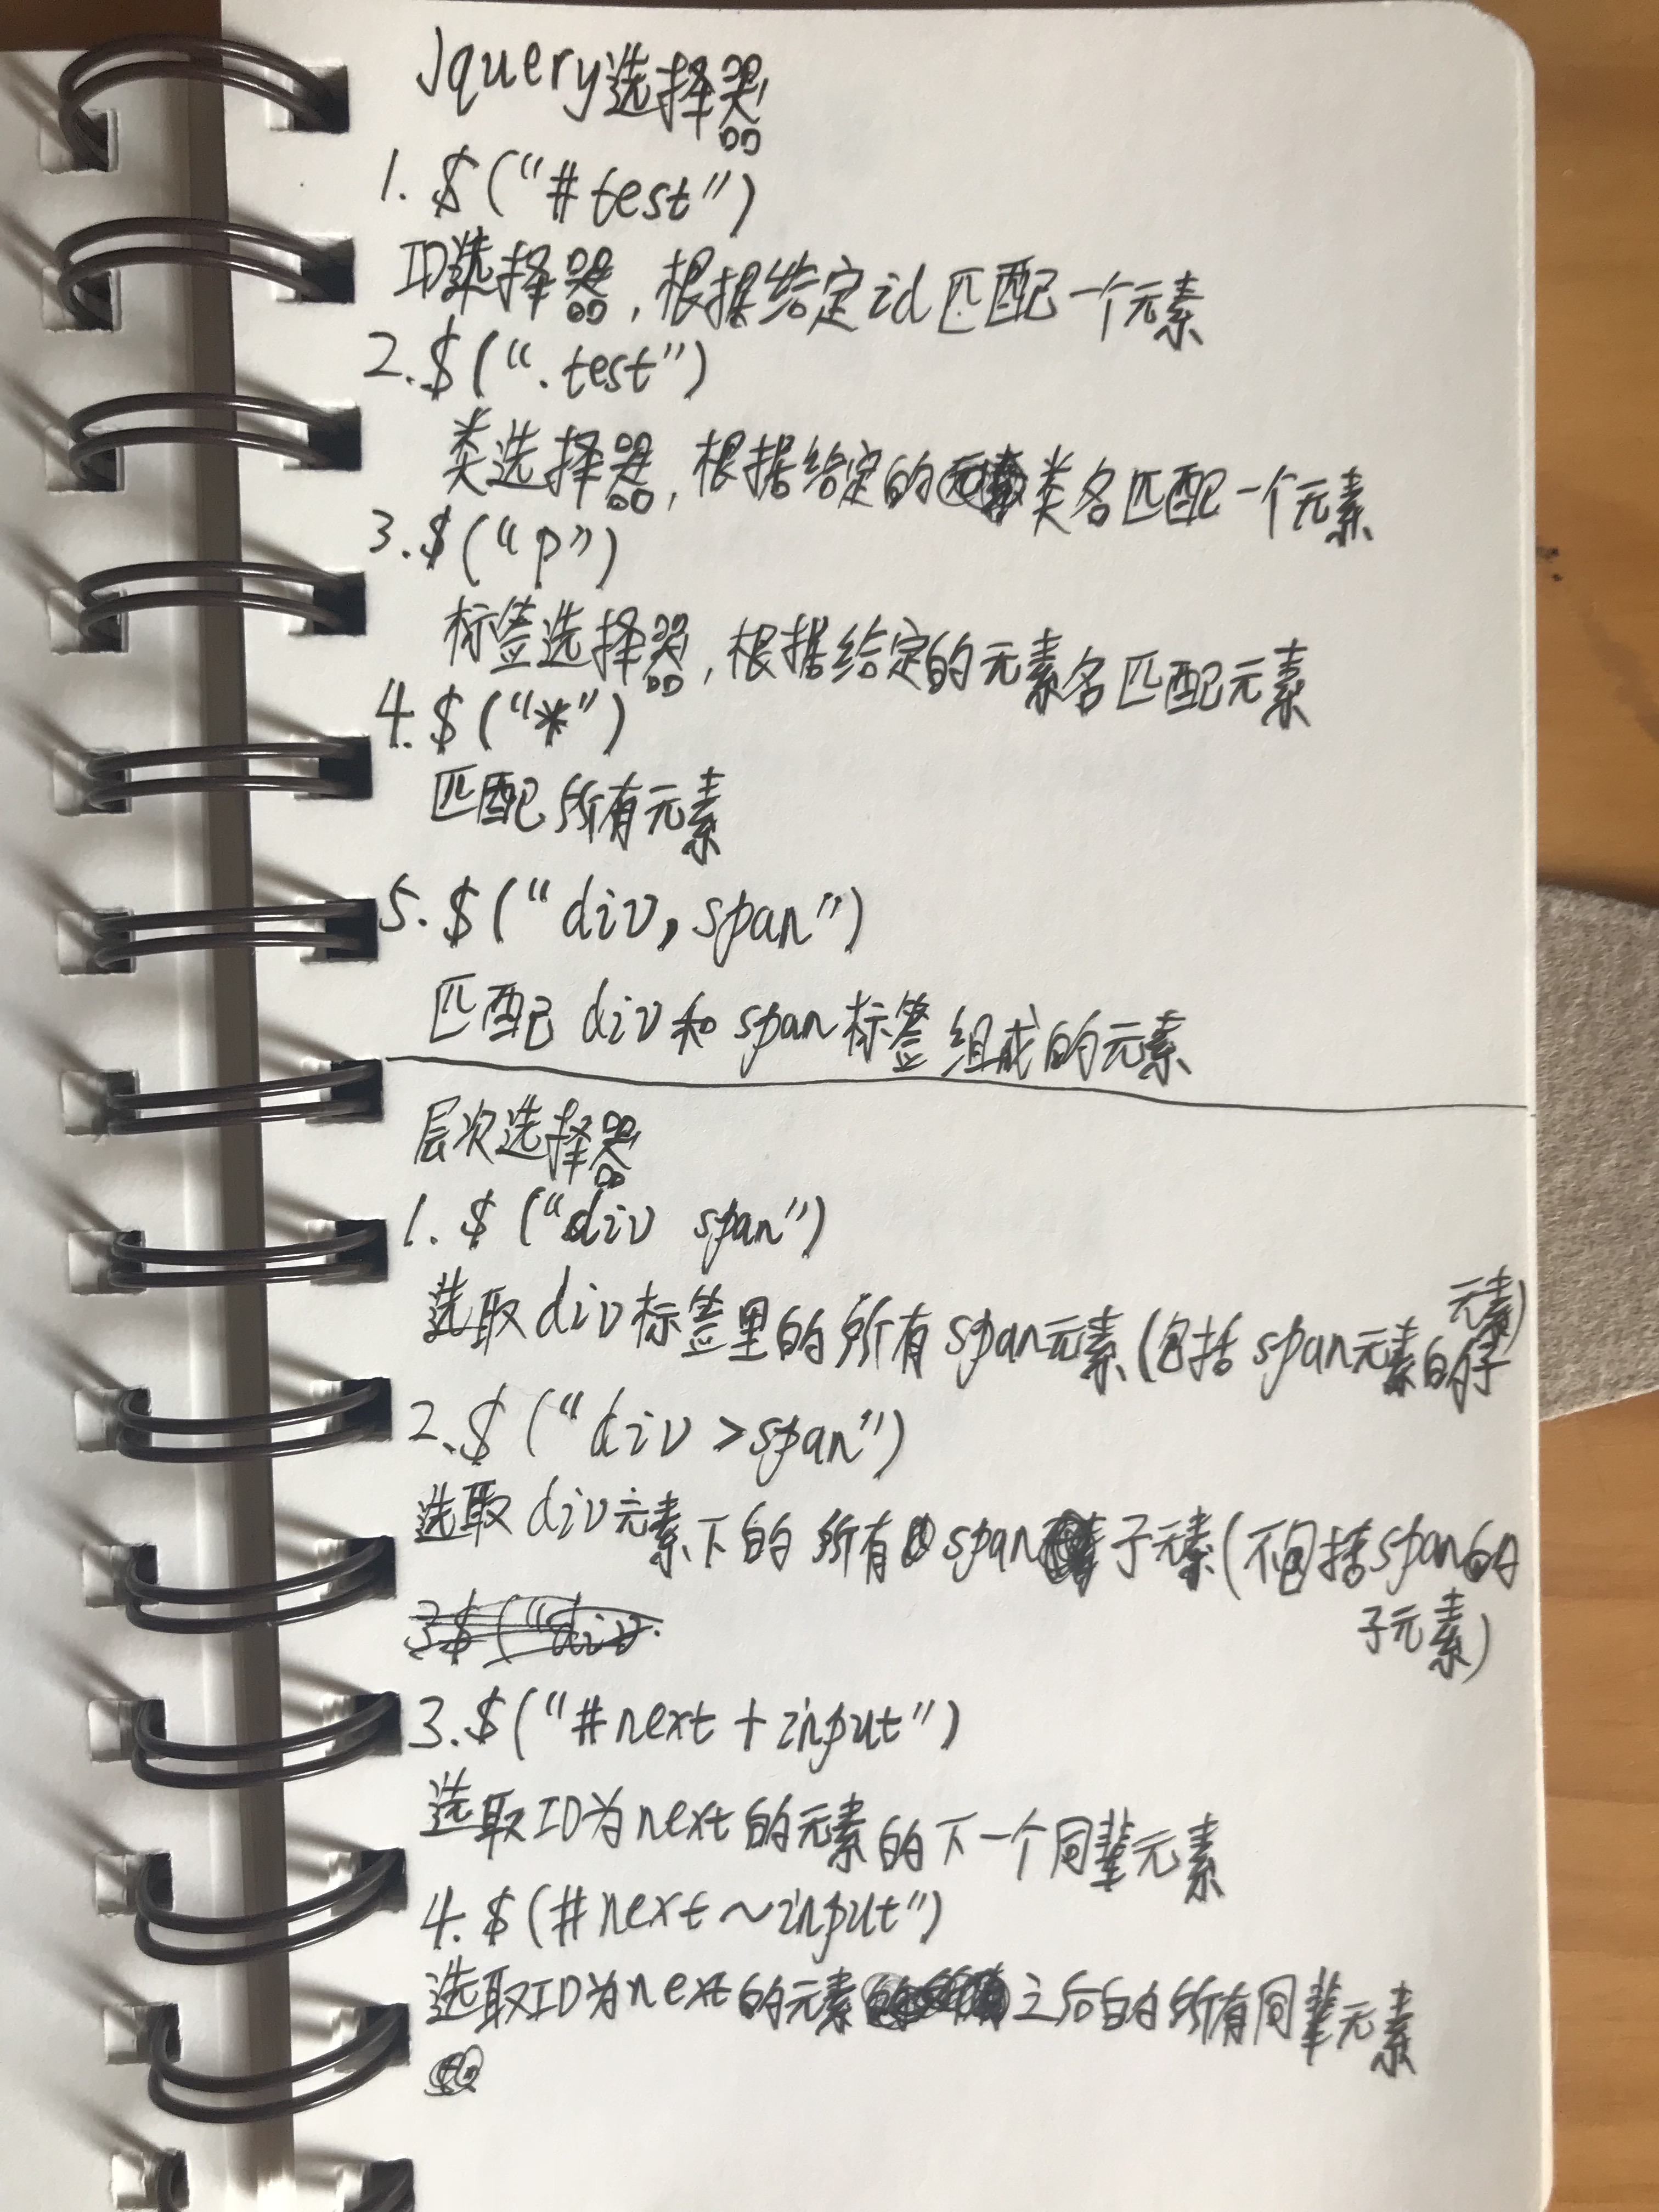 Jquery选择器
1. $("#test")
ID选择器,根据给定id匹配一个元素
2.$(".test")
类选择器,根据给定的类名匹配一个元素
3.$("p")
标签选择器,根据给定的元素名匹配元素
4.$("*")
匹配所有元素
5.$("div,span")
匹配div和span标签组成的元素
层次选择器
1.$("div span")
选取div标签里的所有span元素(包括span元素的子
元素)
2.$("div >span")
选取div元素下的所有span子元素(不包括span的
子元素)
3$("div
3.$("#next+input")
选取ID为next的元素的下一个同辈元素
4.$(#next~input")
选取ID为next的元素之后的所有同辈元素